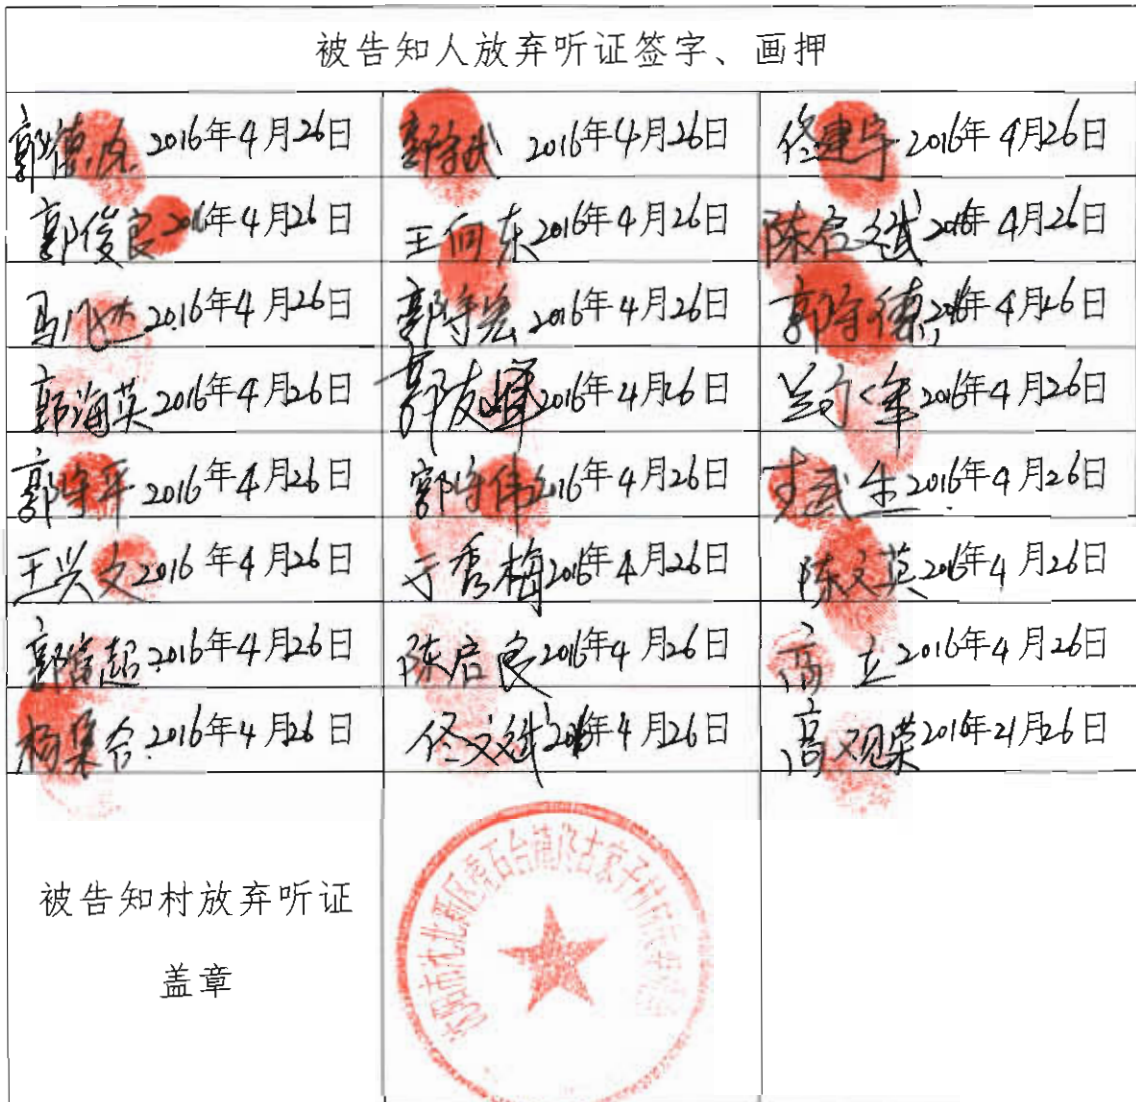 被告知人放弃听证签字、画押
郭德 2016年4月26日 郭守武 2016年4月26日 佟建宇 2016年4月26日
郭俊良 2016年4月26日 王向东 2016年4月26日 陈启斌 2016年4月26日
马 2016年4月26日 郭守宏 2016年4月26日 郭守德 2016年4月26日
郭海英 2016年4月26日 郭友峰 2016年4月26日 2016年4月26日
郭守平 2016年4月26日 郭守伟 2016年4月26日 武生 2016年4月26日
王兴文 2016年4月26日 于秀梅 2016年4月26日 陈文英 2016年4月26日
郭富超 2016年4月26日 陈启良 2016年4月26日 高立 2016年4月26日
杨集合 2016年4月26日 佟文斌 2016年4月26日 高观荣 2016年4月26日
被告知村放弃听证
盖章
沈阳市沈北新区虎石台镇 古家子村村民委员会